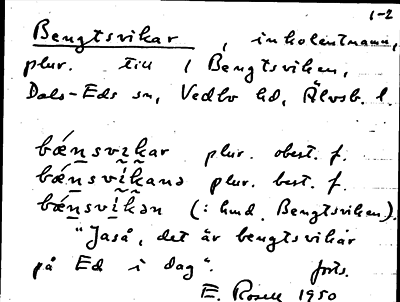 1-2
Bengtsvikar, inkolentnamn,
plur. till 1 Bengtsviken,
Dals-Eds sn, Vedbo hd, Älvsb. l.
bǽnsvikar plur. obest. f.
bǽnsvíkanə plur. best. f.
bǽnsvíkən (: hmd. Bengtsviken).
"Jaså, det är bengtsvikar
på Ed i dag". forts.
E. Rosell 1950